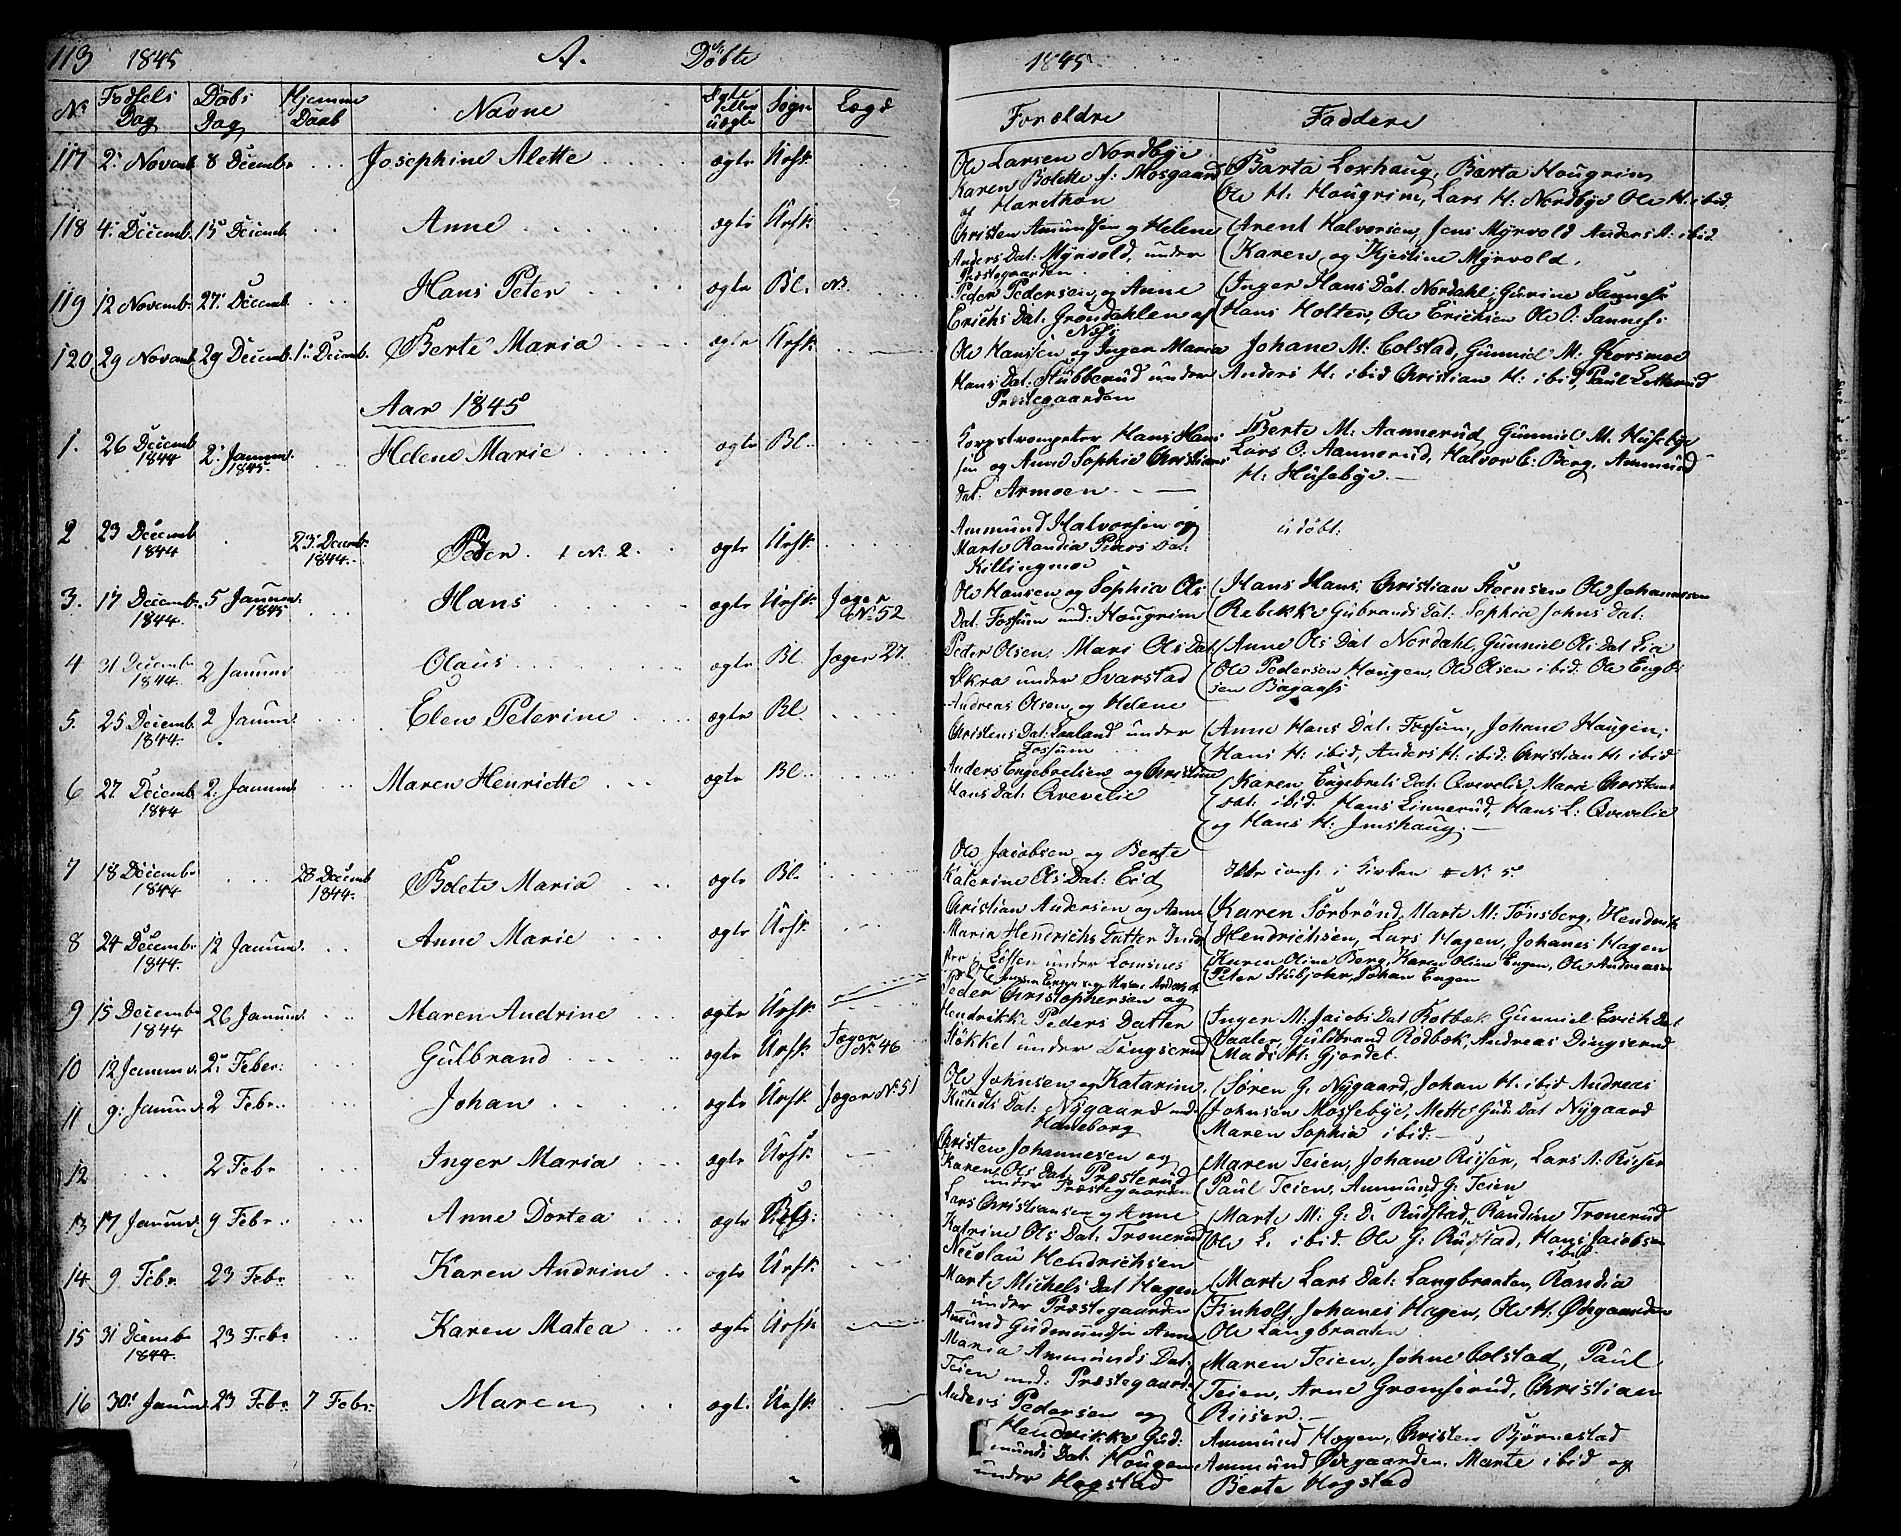 113 1845 A. Døbte 1845
No Fødsels Dag Døbs Dag Hjemme Daab Navne Ægte eller uægte Sogn Lægd Forældre Faddere
117 2. Novemb. 8 Decembr Josephine Alette ægte Ursk.
Ole Larsen Nordbye
Karen Bolette
af Harethon
Barta Loxhaug, Barta Hougrim
Ole H: Hougrim, Lars H: Nordbye Ole H: ibid.
118 4. Decemb. 15 Decemb. Anne ægte Ursk.
Christen Amundsen og Helene
Anders Dat: Myrvold, under
Præstegaarden
Arent Halvorsen, Jens Myrvold Anders A: ibid.
Karen og Kjestine Myrvold.
119 12 Novembr. 27. Decemb Hans Peter ægte Bl.
Peder Pedersen og Anne
Erichs Dat: Grøndahlen af
Næs
Inger Hans Dat. Nordahl, Gurine Sannes
Hans Holter, Ole Erichsen Ole O: Sannes
120 29 Novemb 29 Decemb. 1. Decemb. Berte Maria ægte Ursk.
Ole Hansen og Inger Maria
Hans Dat: Stubberud under
Præstegaarden
Johane M: Colstad, Gunniel M: Korsmoe
Anders H: ibid Christian H: ibid, Paul
Aar 1845
1. 26 Decemb 1844 2. Januar. 1845 Helene Marie ægte Bl.
Korpstrompeter Hans Han-
sen og Anne Sophie Christians
Dat: Armoen
Berte M: Aannerud, Gunniel M. Husebye
Lars O. Aannerud, Halvor E: Berg, Ammund
H: Husebye.
2 23 Decemb 1844 23. Decemb. 1844. Peder No. 2. ægte Ursk.
Ammund Halvorsen og
Marte Randia Peders Dat:
Killingmoe
udøbt.
3. 17 Decemb. 1844. 5 Januar. 1845 Hans ægte Ursk. Jæger No: 52
Ole Hansen og Sophia Ols
Dat. Fossum und: Hougrim
Hans Hans, Christian Steensen Ole Johannessen
Rebekke Gubrands Dat: Sophia Johns Dat:
4 31 Decembr 1844. 2 Januar Olaus ægte Bl. Jæger 27.
Peder Olsen, Mari Ols Dat.
Økra under Svarstad
Anne Ols Dat Nordahl, Gunniel Ols Dat Lia
Ole Pedersen Hougen, Ole Olsen ibid. Ole Engb-
sen Bagaas
5. 25 Decemb. 1844. 2. Januar. Elen Peterine ægte Bl.
Andreas Olsen og Helene
Christens Dat: Laaland under
Fossum
Anne Hans Dat: Fossum, Johane Haugen,
Hans H: ibid, Anders H: ibid: Christian H: ibid
6 27 Decemb 1844 2. Januar. Maren Henriette ægte Bl.
Anders Engebretsen og Christine
Hans Dat: Qvevelie
Karen Engebrets Dat. Qvevelie, Marie Christens
dat: ibid. Hans Linnerud, Hans L: Qvevelie
og Hans H: Imshaug.
7 18 Decembr 1844 28 Decemb 1844. Bolete Maria ægte Bl.
Ole Jacobsen og Berte
Katerine Ols Dat: Eid
Ikke conf. i Kirken No. 5.
8 24 Decembr 1844. 12 Januar. Anne Marie ægte Ursk.
Christian Andersen og Anne
Maria Hendrichs Datter
under Lomsnes
Karen Sørbrönd, Marte M: Tønsberg, Hendrik
Hendrichsen, Lars Hagen, Johanes Hagen
Karen Oline Berg, Karen Oline Engen, Ole Andreasen
Peter Stubjohr, Johan Engen
9 15 Decembr 1844 26 Januar. Maren Andrine ægte Ursk.
Peder Christophersen og
Hendrikke Peders Datter
Stokket under Dingserud
Inger M: Jacobs Dat Rotbæk, Gunniel Erich Dat
Vaaler, Guldbrand Rødbæk, Andreas Dingserud
Mads H: Gjordet.
10 12 Januar. 2. Febr: Gulbrand ægte Ursk. Jæger No. 46
11 9. Januar. 2 Febr. Johan ægte Ursk. Jæger No. 51
Ole Johnsen og Katarine
Knuds Dat: Nygaard und.
Haneborg
Søren G. Nygaard, Johan H: ibid Andreas
Johnsen Mossebye, Mette Gud. Dat Nygaard
Maren Sophia ibid:
12 2 Febr Inger Maria ægte Ursk.
Christen Johannesen og
Karen Ols Dat. Præsterud
under Præstegaarden
Maren Teien, Johane Riiser, Lars A: Riiser
Paul Teien, Ammund G: Teien
13 17 Januar. 9 Febr. Anne Dortea ægte
Lars Christiansen og Anne
Katrine Ols Dat: Tronerud
Marte M: G: D: Rudstad, Randine Tronerud
Ole L. ibid. Ole G: Rudstad, Hans Jacobsen
ibid.
14 9. Febr. 23 Febr. Karen Andrine ægte Ursk.
Nicolau Hendrichsen
Marte Michels Dat Hagen
under Præstegaarden
Marte Lars Dat: Langbraaten, Randia
Finholt, Johanes Hagen, Ole H: Ødegaarden
Ole Langbraaten
15 31 Decembr 1844. 23 Febr Karen Matea ægte Ursk.
Amund Gudmundsen Anne
Maria Ammunds Dat.
Teien und: Præstegaard.
Maren Teien, Johne Colstad, Paul
Teien, Arne Gromserud, Christian
Riiser.
16 30. Januar. 23 Febr. 7 Febr. Maren ægte. Ursk.
Anders Pedersen og
Hendrikke Gud-
munds Dat. Hougen
under Hogstad
Ammund Hagen, Christen Bjørnestad
Ammund Ødegaarden. Marte ibid og
Berte Hogstad